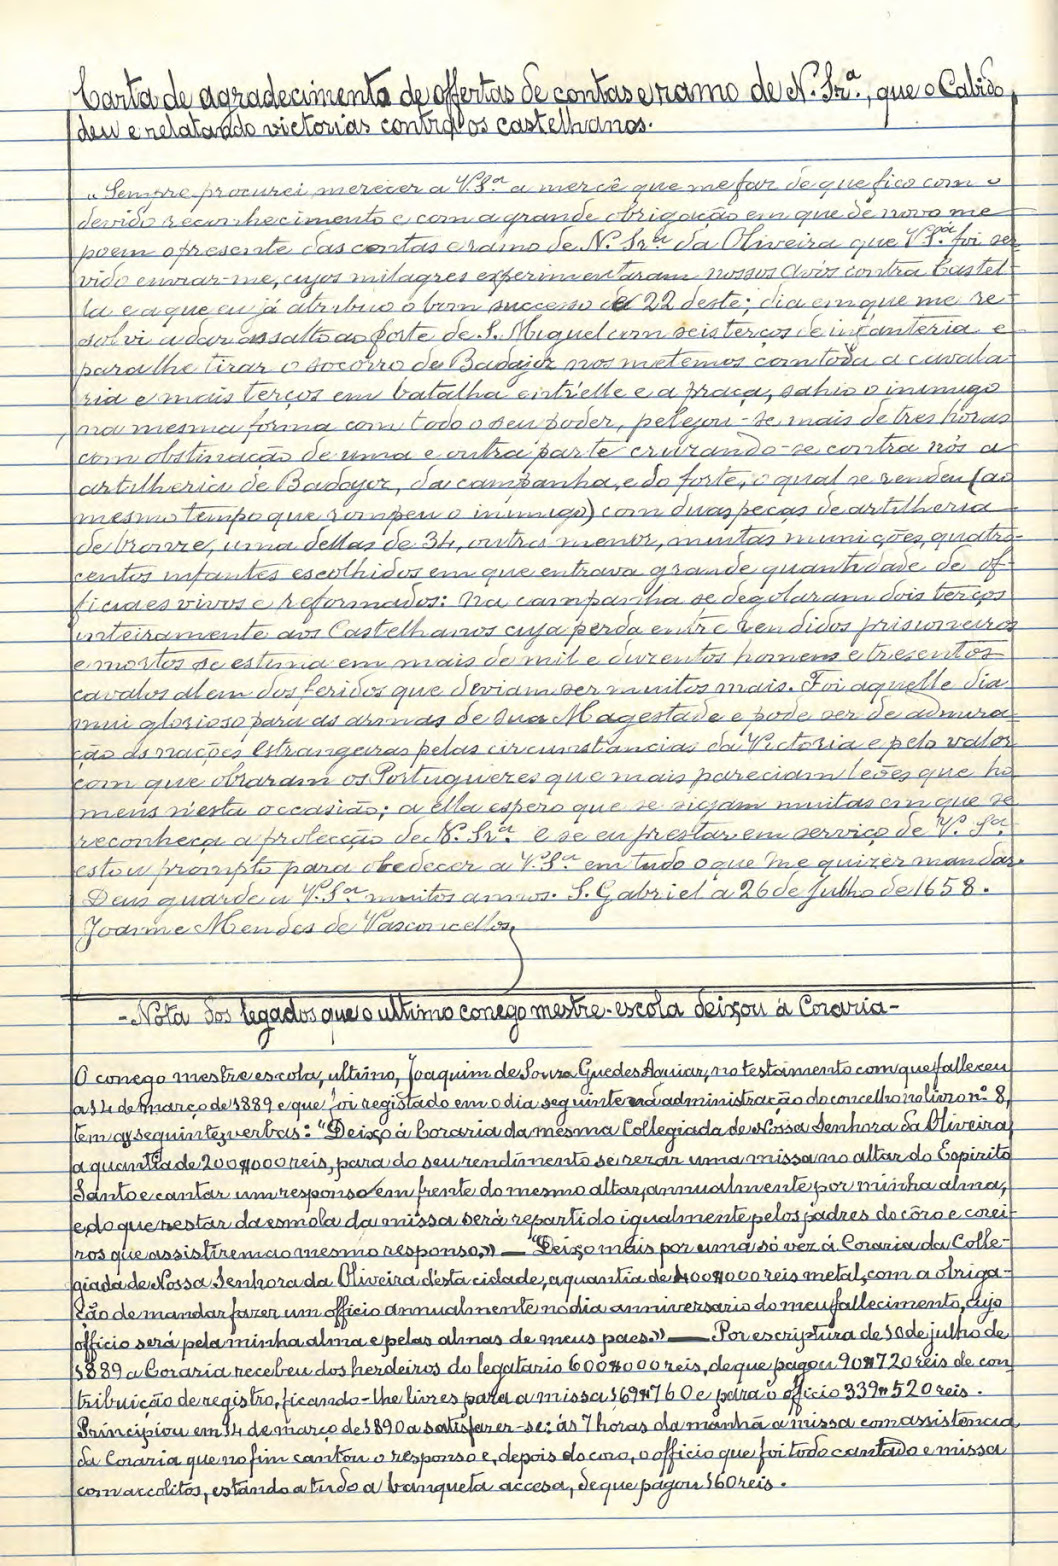 Carta de agradecimento de offertas de contas e ramo de N. Sr.ª, que o Cabido
deu e relatando victorias contra os castelhanos.
"Sempre procurei merecer a V.S.ª a mercê que me faz de que fico com o
devido reconhecimento e com a grande obrigação em que de novo me
poem o presente das contas e ramo de N. Sr.ª da Oliveira que V.S.ª foi ser-
vido enviar-me, cujos milagres experimentaram nossos Avós contra Castel-
la e a que eu já atribuo o bom successo de 22 deste; dia em que me re-
solvi a dar assalto ao forte de S. Miguel com seis terços de infanteria e
para lhe tirar o socorro de Badajoz nos metemos com toda a cavala-
ria e mais terços em batalha entr'elle e a praça, sahio o inimigo
na mesma forma com todo o seu poder, pelejou-se mais de tres horas
com obstinação de uma e outra parte cruzando-se contra nós a
artilheria de Badajoz, da campanha, e do forte, o qual se rendeu (ao
mesmo tempo que rompeu o inimigo) com duas peças de artilheria
de bronze, uma dellas de 34, outra menor, muitas munições, quatro-
centos infantes escolhidos em que entrava grande quantidade de of-
ficiaes vivos e reformados: na campanha se degolaram dois terços
inteiramente aos Castelhanos cuja perda entre rendidos prisioneiros
e mortos se estima em mais de mil e duzentos homens e tresentos
cavalos alem dos feridos que deviam ser muitos mais. Foi aquelle dia
mui glorioso para as armas de sua Magestade e pode ser de admira-
ção ás nações estrangeiras pelas circumstancias da Victoria e pelo valor
com que obraram os Portuguezes que mais pareciam leões que ho-
mens n'esta occasião; a ella espero que se sigam muitas em que se
reconheça a protecção de N. Sr.ª e se eu prestar em serviço de V. S.ª
estou prompto para obedecer a V.S.ª em tudo o que me quizer mandar.
Deus guarde a V.S.ª muitos annos. S. Gabriel a 26 de Julho de 1658.
Joanne Mendes de Vasconcellos
-Nota dos legados que o ultimo conego mestre-escola deixou á Coraria-
O conego mestre escola, ultimo, Joaquim de Souza Guedes Aguiar, no testamento com que falleceu
a 14 de março de 1889 e que foi registado em o dia seguinte na administração do concelho no livro n.º 8,
tem as seguintes verbas: "Deixo á Coraria da mesma Collegiada de Nossa Senhora da Oliveira
a quantia de 200$000 reis, para do seu rendimento se rezar uma missa no altar do Espirito
Santo e cantar um responso em frente do mesmo altar, annualmente por minha alma,
e do que restar da esmola da missa será repartido igualmente pelos padres do côro e corei-
ros que assistirem ao mesmo responso." — "Deixo mais por uma só vez á Coraria da Colle-
giada de Nossa Senhora da Oliveira d'esta cidade, a quantia de 400$000 reis metal, com a obriga-
ção de mandar fazer um officio annualmente no dia anniversario do meu fallecimento, cujo
officio será pela minha alma e pelas almas de meus paes." — Por escriptura de 10 de julho de
1889 a Coraria recebeu dos herdeiros do legatario 600$000 reis, de que pagou 90$720 reis de con-
tribuição de registro, ficando-lhe livres para a missa 169$760 e para o officio 339$520 reis.
Principiou em 14 de março de 1890 a satisfazer-se: ás 7 horas da manhã a missa com assistencia
da Coraria que no fim cantou o responso e, depois do coro, o officio que foi todo cantado e missa
com accolitos, estando a tudo a banqueta accesa, de que pagou 160 reis.